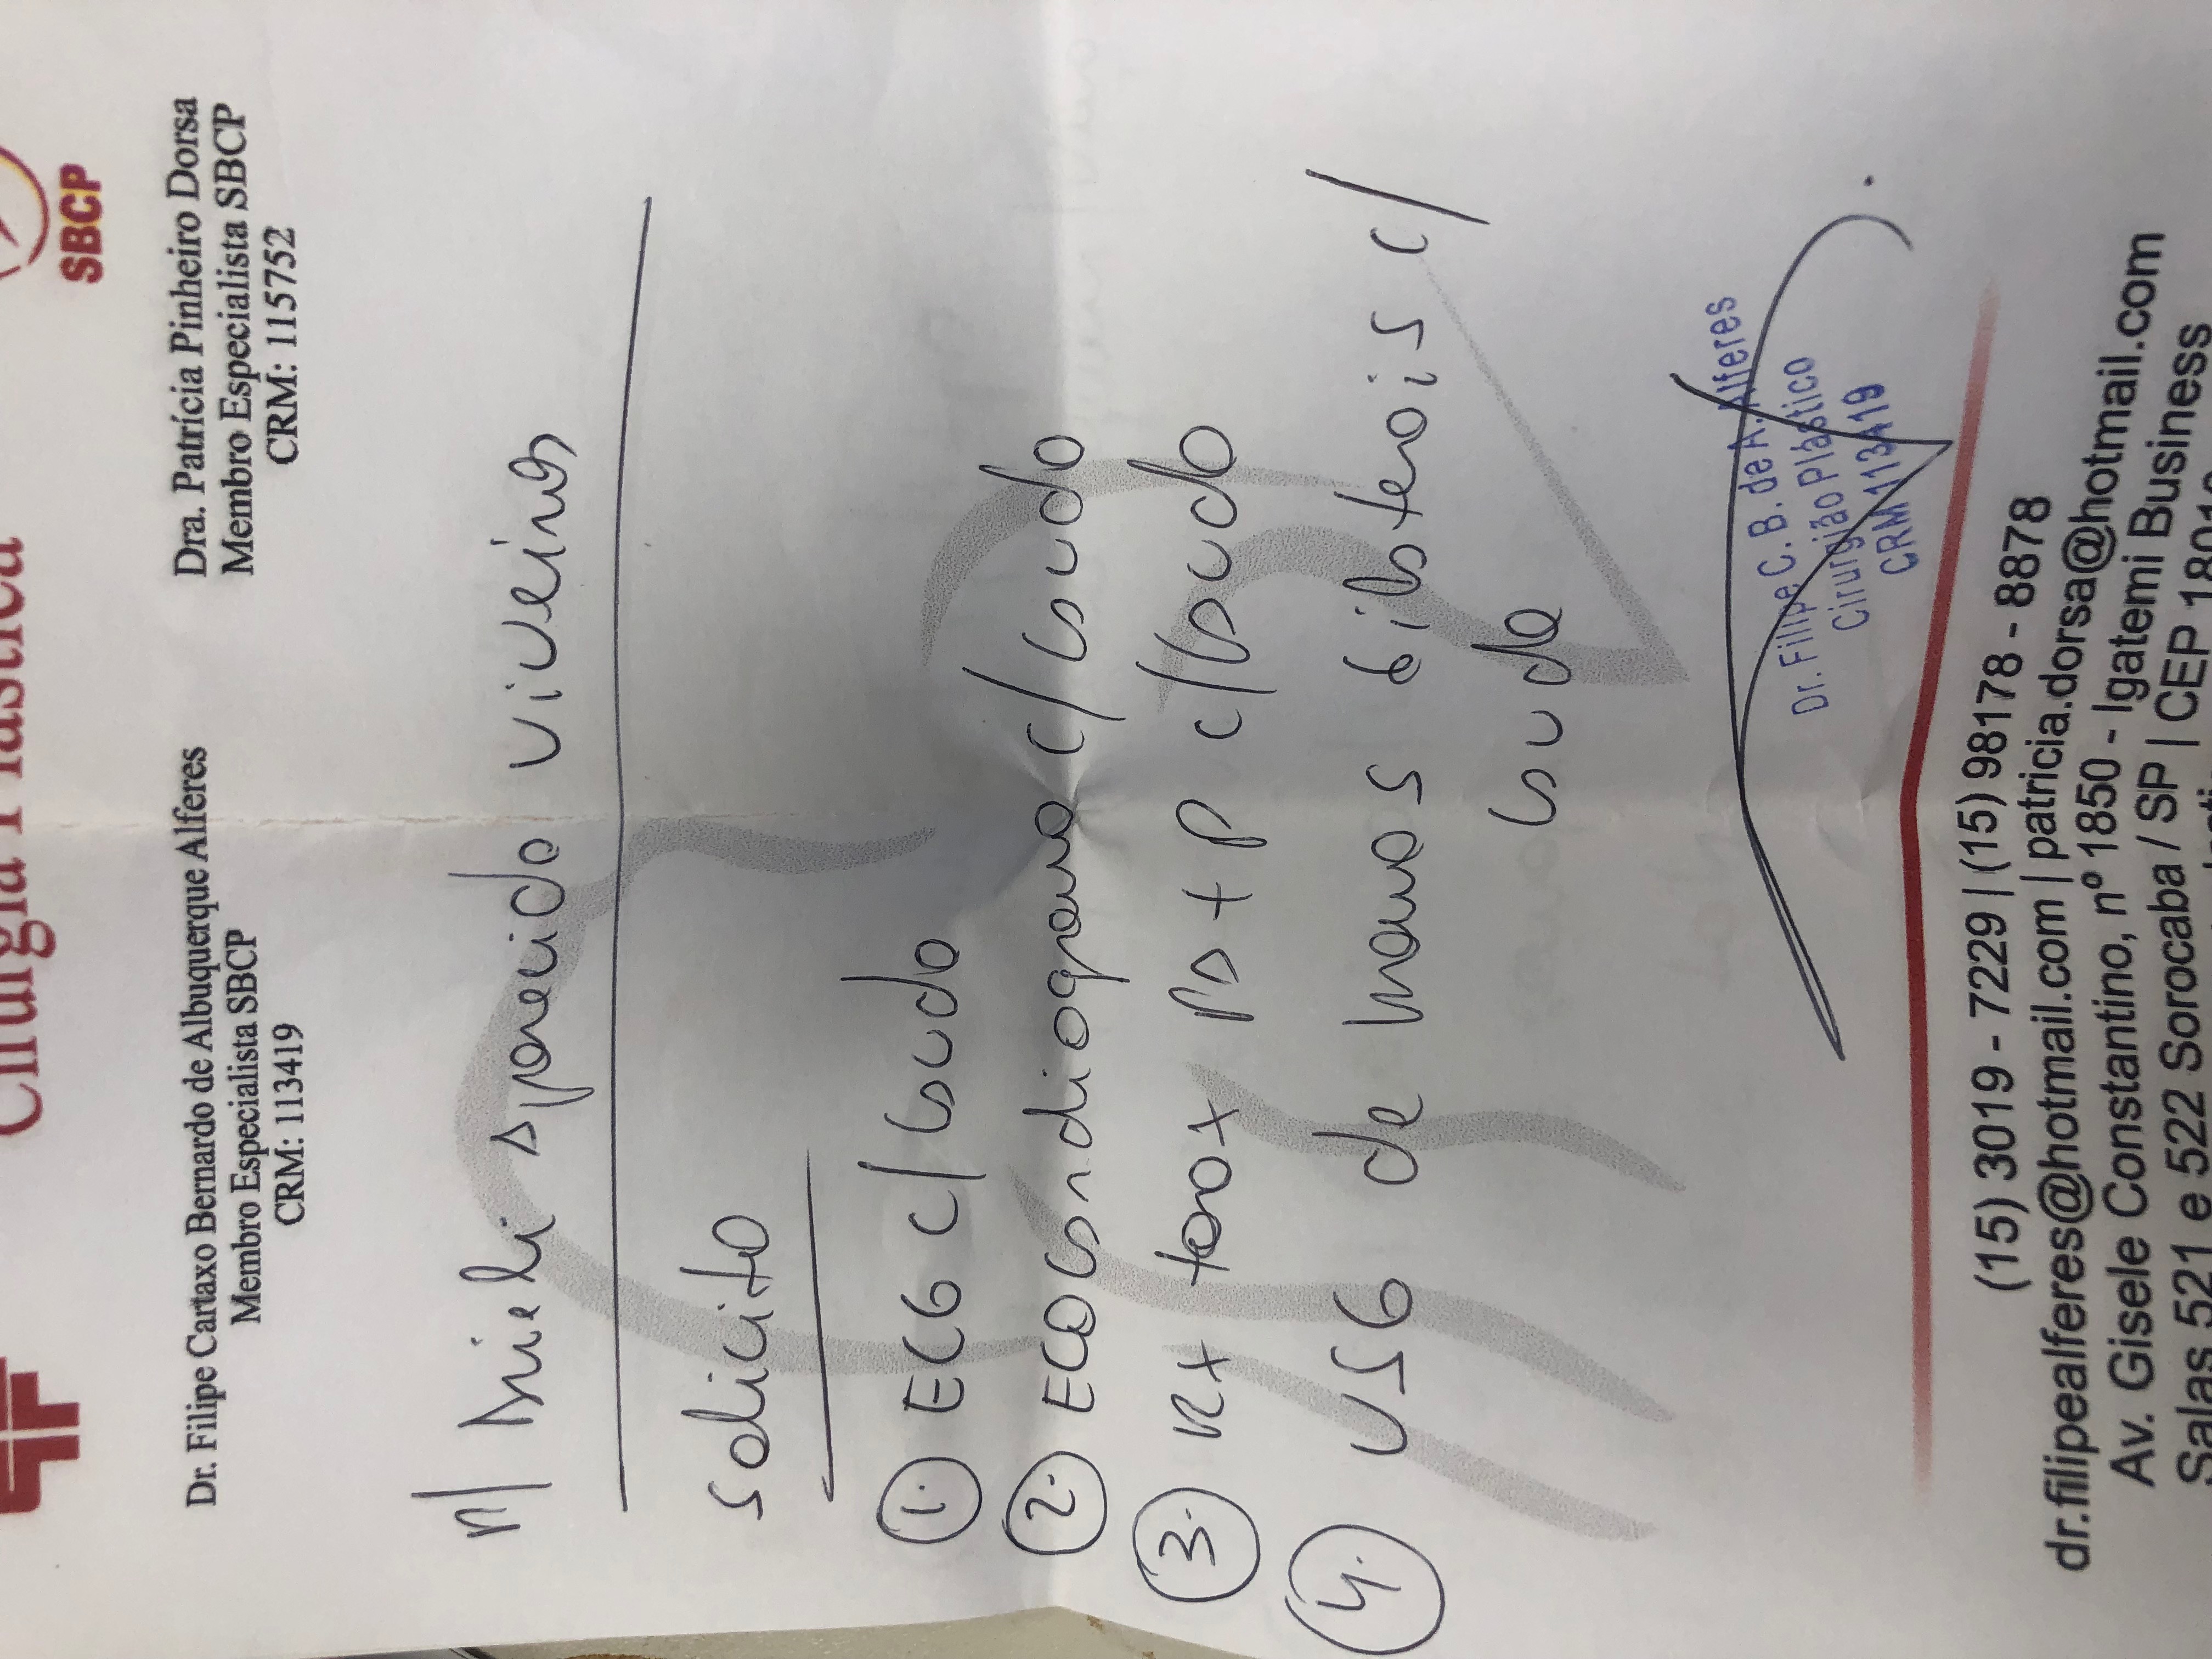 Cirurgia Plástica
SBCP
Dr. Filipe Cartaxo Bernardo de Albuquerque Alferes
Membro Especialista SBCP
CRM: 113419
Dra. Patrícia Pinheiro Dorsa
Membro Especialista SBCP
CRM: 115752
P/ Arieli Aparecida Viveiros
Solicito
1. ECG c/ laudo
2. ECOcardiograma c/ laudo
3. RX torax PA + P c/ laudo
4. USG de mamas bilaterais c/
laudo
Dr. Filipe C. B. de A. Alferes
Cirurgião Plástico
CRM 113419
(15) 3019 - 7229 | (15) 98178 - 8878
dr.filipealferes@hotmail.com | patricia.dorsa@hotmail.com
Av. Gisele Constantino, nº 1850 - Igatemi Business
Salas 521 e 522 Sorocaba / SP | CEP